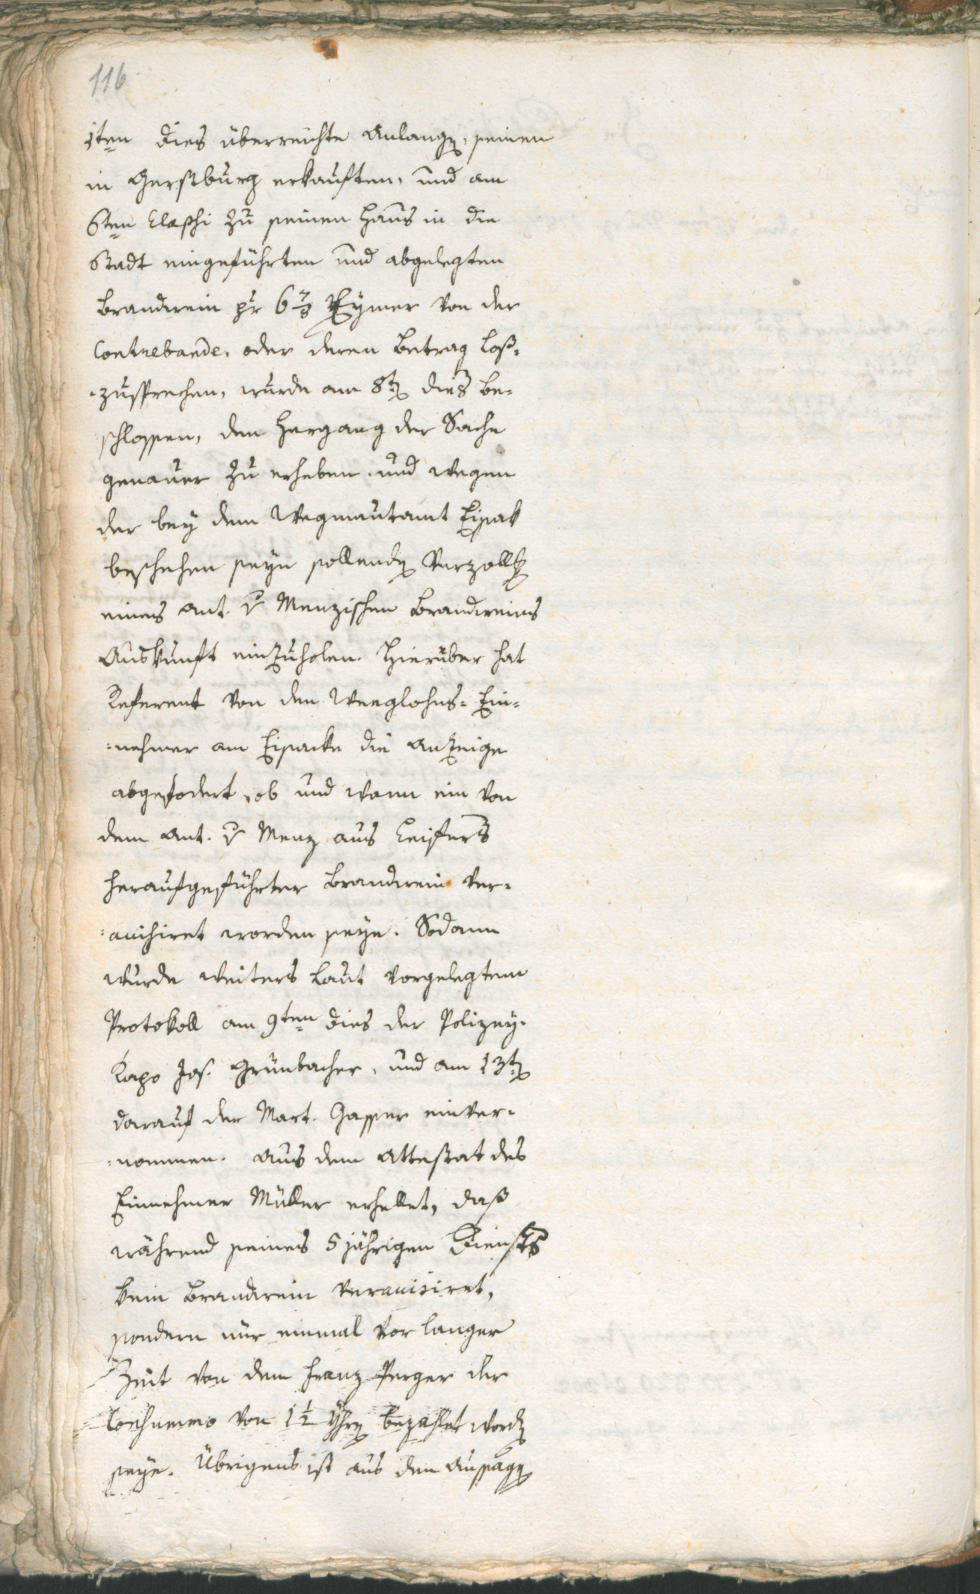 116
1ten dies überreichte Anlangen, seinen
in Gerstburg erkauften, und am
6ten elaßi zu seinen Haus in die
Stadt eingeführten und abgelegten
Brandwein pr 6 7/8 Eymer von der
Contrebande, oder deren Betrag loß-
-zusprechen, wurde am 8ten dies be-
schlossen, den Hergang der Sache
genauer zu erheben, und wegen
der bey dem Wegmautamt Eisak
beschehen seyn sollenden Verzollg
eines Ant. v Menzischen Brandweins
Auskunft einzuholen. Hierüber hat
Referent von den Weeglohns-Ein-
-nehmer am Eisacke die Anzeige
abgefodert, ob und wann ein von
dem Ant. v Menz aus Leifers
heraufgeführter Brandwein ver-
-accisiret worden seye. Sodann
wurde weiters laut vorgelegtem
Protokoll am 9ten dies der Polizey-
Kapo Jos. Grünbacher, und am 13ten
darauf der Mart. Gasser einver-
-nommen. Aus dem Attestat des
Einnehmer Müller erhellet, daß
während seines 5 jährigen Diensts
kein Brandwein veraccisiret,
sondern nur einmal vor langer
Zeit von dem Franz Perger der
Conssummo von 1 1/2 Yhrn bezahlet worden
seye. Übrigens ist aus den Aussagen